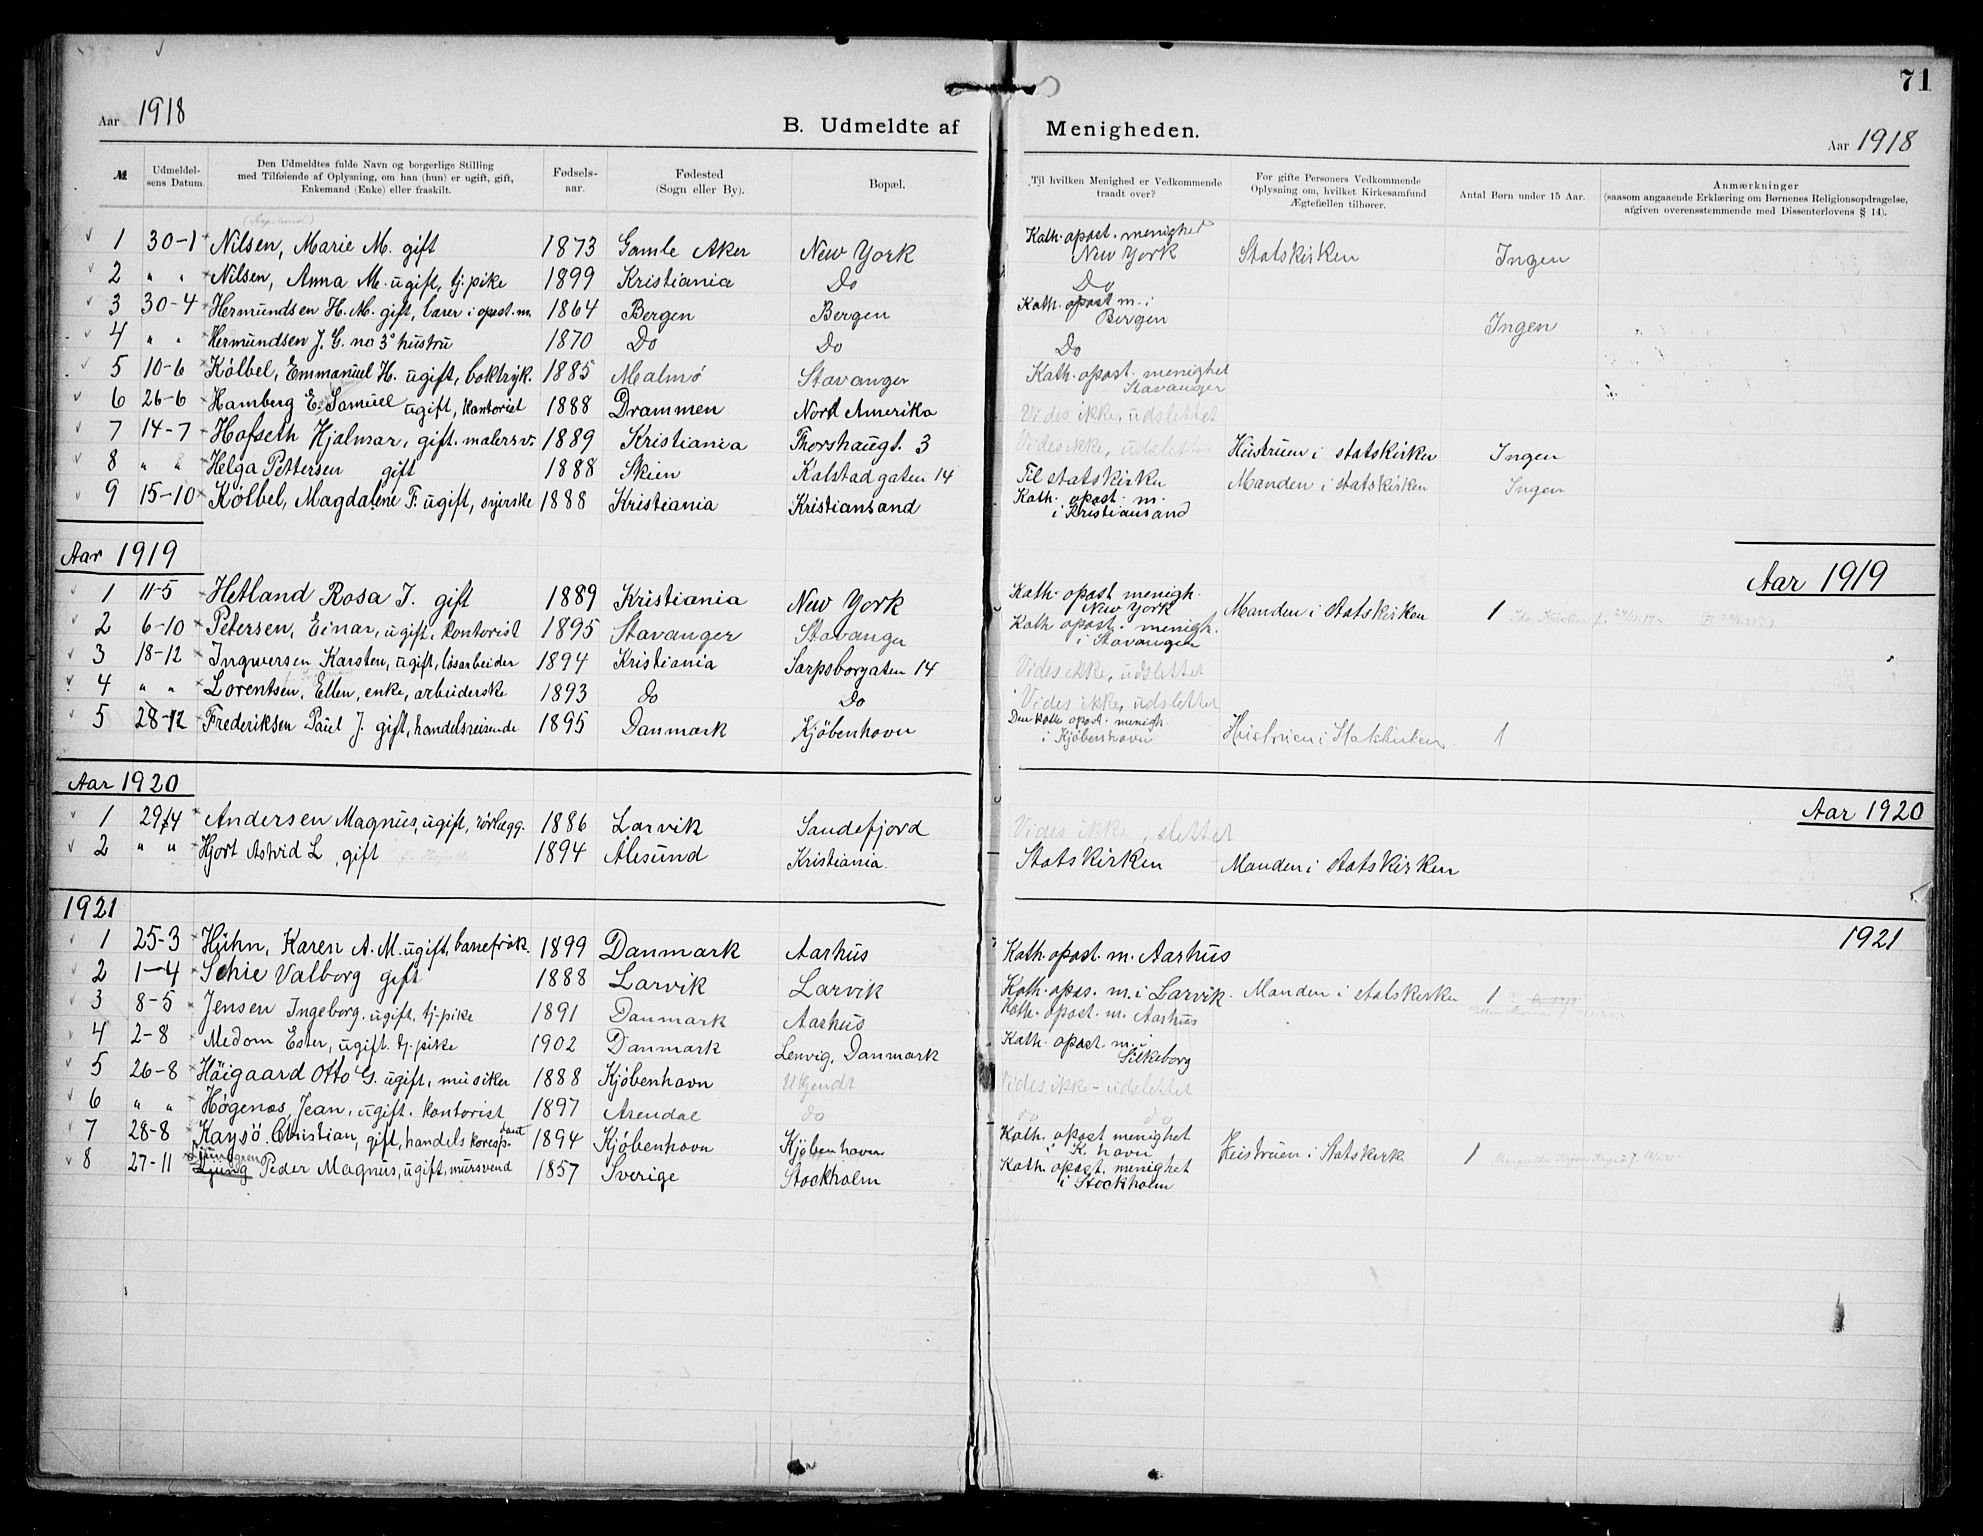 71
Aar 1918
B. Udmeldte af Menigheden.
Aar 1918
№
Udmeldelsens Datum.
Den Udmeldtes fulde Navn og borgerlige Stilling
med Tilføiende af Oplysning, om han (hun) er ugift, gift,
Enkemand (Enke) eller fraskilt.
Fødselsaar.
Fødested
(Sogn eller By).
Bopæl.
Til hvilken Menighed er Vedkommende
traadt over?
For gifte Personers Vedkommende
Oplysning om, hvilket Kirkesamfund
Ægtefællen tilhører.
Antal Børn under 15 Aar.
Anmærkninger
(saasom angaaende Erklæring om Børnenes Religionsopdragelse,
afgiven overensstemmende med Dissenterlovens § 14).
1 30-1 Nilsen, Marie M. gift 1873 Gamle Aker New York Kath. apost. menighet New York Statskirken Ingen
2 " " Nilsen, Anna M. ugift, tj. pike 1899 Kristiania Do Do
3 30-4 Hermundsen H. M. gift, lærer i apost. m. 1864 Bergen Bergen Kath. apost m. i Bergen Ingen
4 " " Hermundsen J. C. no 3s hustru 1870 Do Do Do
5 10-6 Kölbel, Emmanuel H. ugift, boktryk. 1885 Malmö Stavanger Kath. apost. menighet Stavanger
6 26-6 Hamberg E. Samuel ugift, kontorist 1888 Drammen Nord Amerika Vides ikke, udslettet
7 14-7 Hofseth Hjalmar, gift. malersv. 1889 Kristiania Thorshaugt. 3 Vides ikke, udslettet Hustruen i statskirken Ingen
8 " " Helga Pettersen gift 1888 Skien Kalstadgaten 14 Til statskirke Manden i statskirken Ingen
9 15-10 Kölbel, Magdalene F. ugift, syerske 1888 Kristiania Kristiansand Kath. apost. m. i Kristiansand
Aar 1919
Aar 1919
1 11-5 Hetland Rosa J. gift 1889 Kristiania New York Kath. apost menigh. New York Manden i statskirken 1
2 6-10 Petersen, Einar, ugift, kontorist 1895 Stavanger Stavanger Kath apost. menigh. i Stavanger
3 18-12 Ingwersen Karsten, ugift, løsarbeider 1894 Kristiania Sarpsborgaten 14 Vides ikke, udslettet
4 " " Lorentsen, Ellen, enke, arbeiderske 1893 Do Do Vides ikke, udslettet
5 28-12 Frederiksen Paul J. gift, handelsreisende 1895 Danmark Kjöbenhavn Den kath apost. menigh. i Kjöbenhavn Hustruen i Statskirken 1
Aar 1920
Aar 1920
1 29/4 Andersen Magnus, ugift, rörlægg. 1886 Larvik Sandefjord Vides ikke, slettet
2 " " Hjort Astrid L, gift 1894 Ålesund Kristiania. Statskirken Manden i statskirken
1921
1921
1 25-3 Hühn, Karen A. M. ugift, 1899 Danmark Aarhus Kath. apost. m. Aarhus
2 1-4 Schie Valborg gift 1888 Larvik Larvik Kath. apos. m. i Larvik. Manden i statskirke 1
3 8-5 Jensen Ingeborg. ugift, tj. pike 1891 Danmark Aarhus Kath. apost. m. Aarhus
4 2-8 Medom Ester, ugift. tj. pike 1902 Danmark Lemvig, Danmark Kath. apost. m. i Silkeborg
5 26-8 Häigaard Otto G. ugift, musiker 1888 Kjöbenhavn Ukjendt Vides ikke - udslettet
6 " " Högenas, Jean, ugift. kontorist 1897 Arendal do do do
7 28-8 Kaysö Christian, gift, handels koresp.-dant 1894 Kjöbenhavn Kjöbenhavn Kath. apost menighet i K. havn Hustruen i Statskirk. 1
8 27-11 Ljunggren Ljung Peder Magnus, ugift, mursvend 1857 Sverige Stockholm Kath. apost. menighet i Stockholm